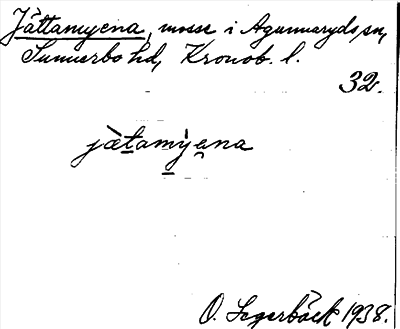 Jättamyena, mosse i Agunnaryds sn,
Sunnerbo hd, Kronob. l.
32.
jàt̲amỳ̲ena
O. Segerbäck 1938.